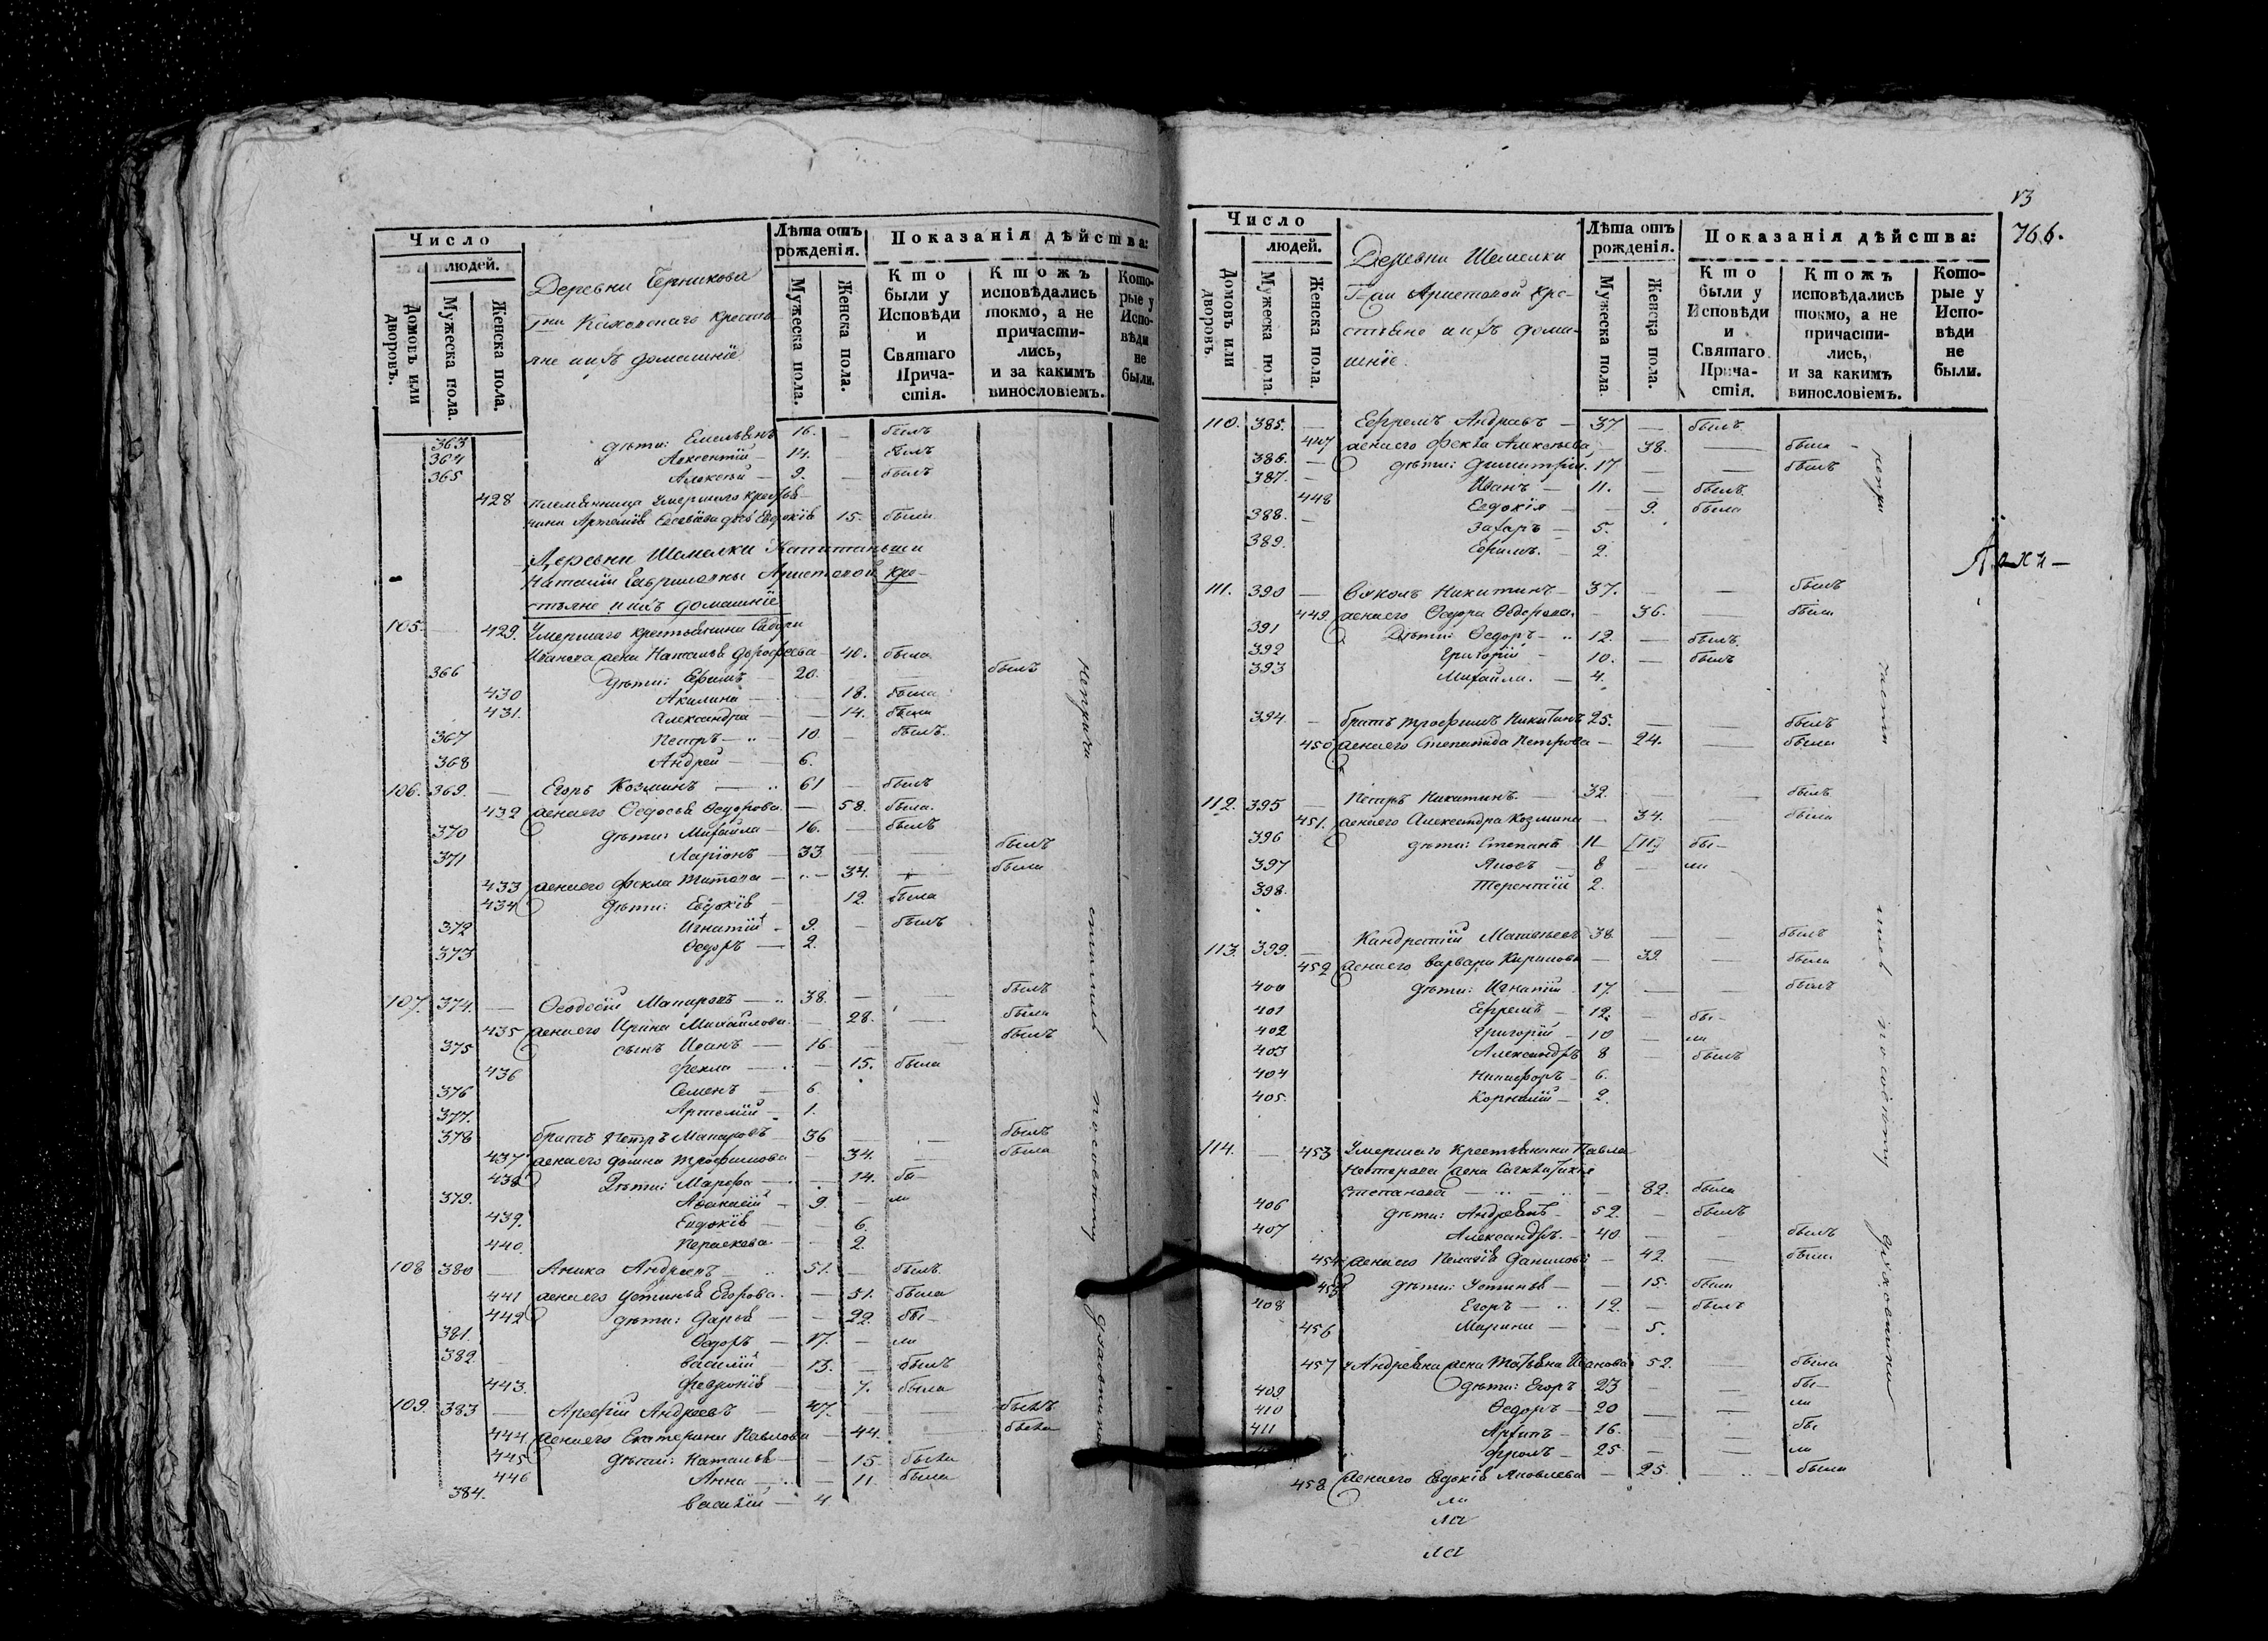 Число
людей.
Домовъ или дворовъ.
Мужеска пола.
Женска пола.
Деревни Черникова
Г-на Каховскаго крестья-
яне и ихъ домашніе
Лѣта отъ рожденія.
Мужеска пола.
Женска пола.
Показанія дѣйства:
Кто были у Исповѣди и Святаго Причастія.
Ктожъ исповѣдались токмо, а не причастились, и за какимъ винословіемъ.
Которые у Исповѣди не были.
363 дѣти: Емельянъ 16. — былъ
364 Авксентій — 14. — былъ
365 Алексѣй — 9. — былъ
428 племянница умершаго крестья-
нина Артемія дочь Евдокія 15. была
Деревни Шемелки Капитанши
Наталіи Гавриловны Аристовой кре-
стьяне и ихъ домашніе
105. 429. Умершаго крестьянина
Иванова жена Наталья Дорофеева 40. была
366 Дѣти: Ефимъ — 20. былъ
430 Акилина — 18. была
431. Александра — 14. была
367 Петръ — 10. — былъ.
368 Андрей — 6.
106. 369. — Егоръ Козминъ — 61 — былъ
432 жена его Ѳедосья Ѳедорова. — 58. была.
370 дѣти: Михайла — 16. — былъ
371 Ларіонъ — 33 — — былъ
433 жена его Фекла Титова — 34. — была
434 Дѣти: Евдокія — 12. была
372 Игнатій — 9. — былъ
373 Ѳедоръ — 2.
107. 374. — Ѳеодосій Макаровъ — 38. — — былъ
435 жена его Ирина Михайлова. — 28. — была
375 сынъ Иванъ — 16 — — былъ
436 Фекла — 15. была
376 Семенъ — 6
377. Артемій — 1.
378 братъ Петръ Макаровъ — 36 — — былъ
437 жена его Домна Трофимова — 34. — была
438 Дѣти: Марфа — 14. бы —
379. Аѳанасій — 9. — ли
439. Евдокія — 6.
440. Параскева — 2.
108 380 — Аника Андреевъ — 51. — былъ.
441 жена его Устинья Егорова. — 51. была
442 дѣти: Дарья — 22. бы —
381. Ѳедоръ — 17. — ли
382. Василій — 13. — былъ
443. Февронія — 7. была
109. 383 — Арефій Андреевъ — 47. — — былъ
444 жена его Екатерина Павлова — 44. была
445 дѣти: Наталья — 15 была
446 Анна — 11. была
384. Василій — 4
непричастились по совѣту духовника
13
766.
Число
людей.
Домовъ или дворовъ
Мужеска пола
Женска пола.
Деревни Шемелки
Г-жи Аристовой кре-
стьяне и ихъ дома-
шніе.
Лѣта отъ рожденія.
Мужеска пола
Женска пола.
Показанія дѣйства:
Кто были у Исповѣди и Святаго Причастія.
Ктожъ исповѣдались токмо, а не причастились, и за какимъ винословіемъ.
Которые у Исповѣди не были.
110. 385. — Ефремъ Андреевъ — 37 — былъ
447 жена его Фекла Алексеева, — 38. — была
386. — дѣти: Димитрій. 17 — — былъ
387. — Иванъ — 11. — былъ
448 Евдокія — 9. была
388. — Захаръ — 5.
389. Ефимъ. — 2.
111. 390 — Никитинъ — 37. — — былъ
449. жена его Ѳедора Ѳедорова. — 36. — была
391 Дѣти: Ѳедоръ — 12. — былъ
392 Григорій — 10. — былъ
393 Михайла. — 4.
394. — братъ Трофимъ Никитинъ 25. — — былъ
450 жена его Степанида Петрова — 24. — была
112. 395 — Петръ Никитинъ. — 32. — — былъ
451. жена его Александра Козмина — 34. — была
396 дѣти: Степанъ 11 — [11] бы —
397 Яковъ — 8 — ли
398. Терентій 2.
113. 399. — Кандратій Матвѣевъ 38 — — былъ
452 жена его Варвара Кирилова — 39. — была
400 дѣти: Игнатій 17. — — былъ
401 Ефремъ — 12. — бы —
402 Григорій — 10 — ли
403 Александръ 8 — былъ
404 Никифоръ — 6.
405. Корнилій — 2.
114. — 453 Умершаго Крестьянина Павла
Нестерова жена
Степанова — 82. была
406 дѣти: Андреянъ — 52. — былъ
407 Александръ. — 40 — — былъ
454 жена его Пелагія Данилова — 42. — была
455 дѣти: Устинья — 15. была
408 Егоръ — 12. — былъ
456 Марина — 5.
457 у Андреяна жена Татьяна Иванова 52. — была
409. дѣти: Егоръ 23 — — бы —
410 Ѳедоръ — 20 — — ли
411 Архипъ — 16. — — бы
Фролъ — 25 — — ли
458. жена его Евдокія Яковлева — 25. — была
ли
ла
ла
непричастились по совѣту духовника